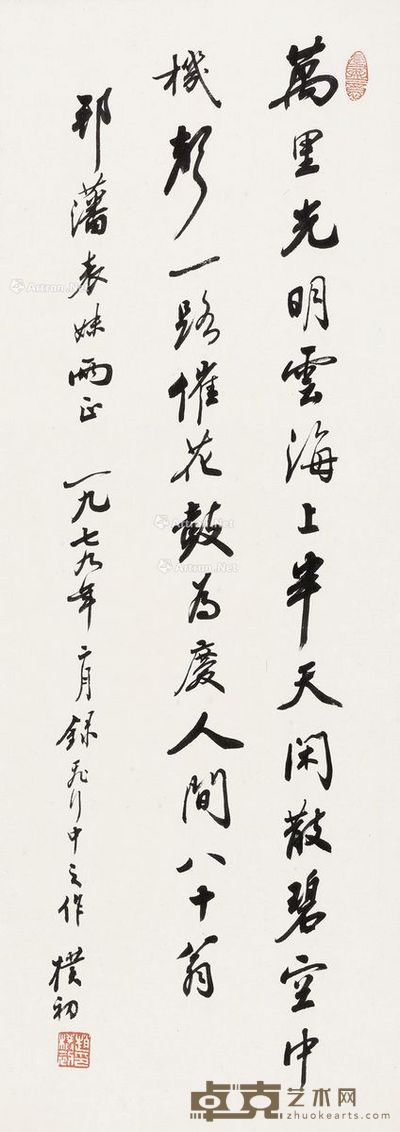 萬里光明雲海上半天閑散碧空中
機聲一路催花鼓為慶人間八十翁
邦藩表妹兩正 一九七九年二月錄飛行中之作 樸初
趙樸初
Artron.Net
Artron.Net
Artron.Net
Artron.Net
卓克艺术网
zhuokearts.com